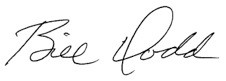 Bill Dodd